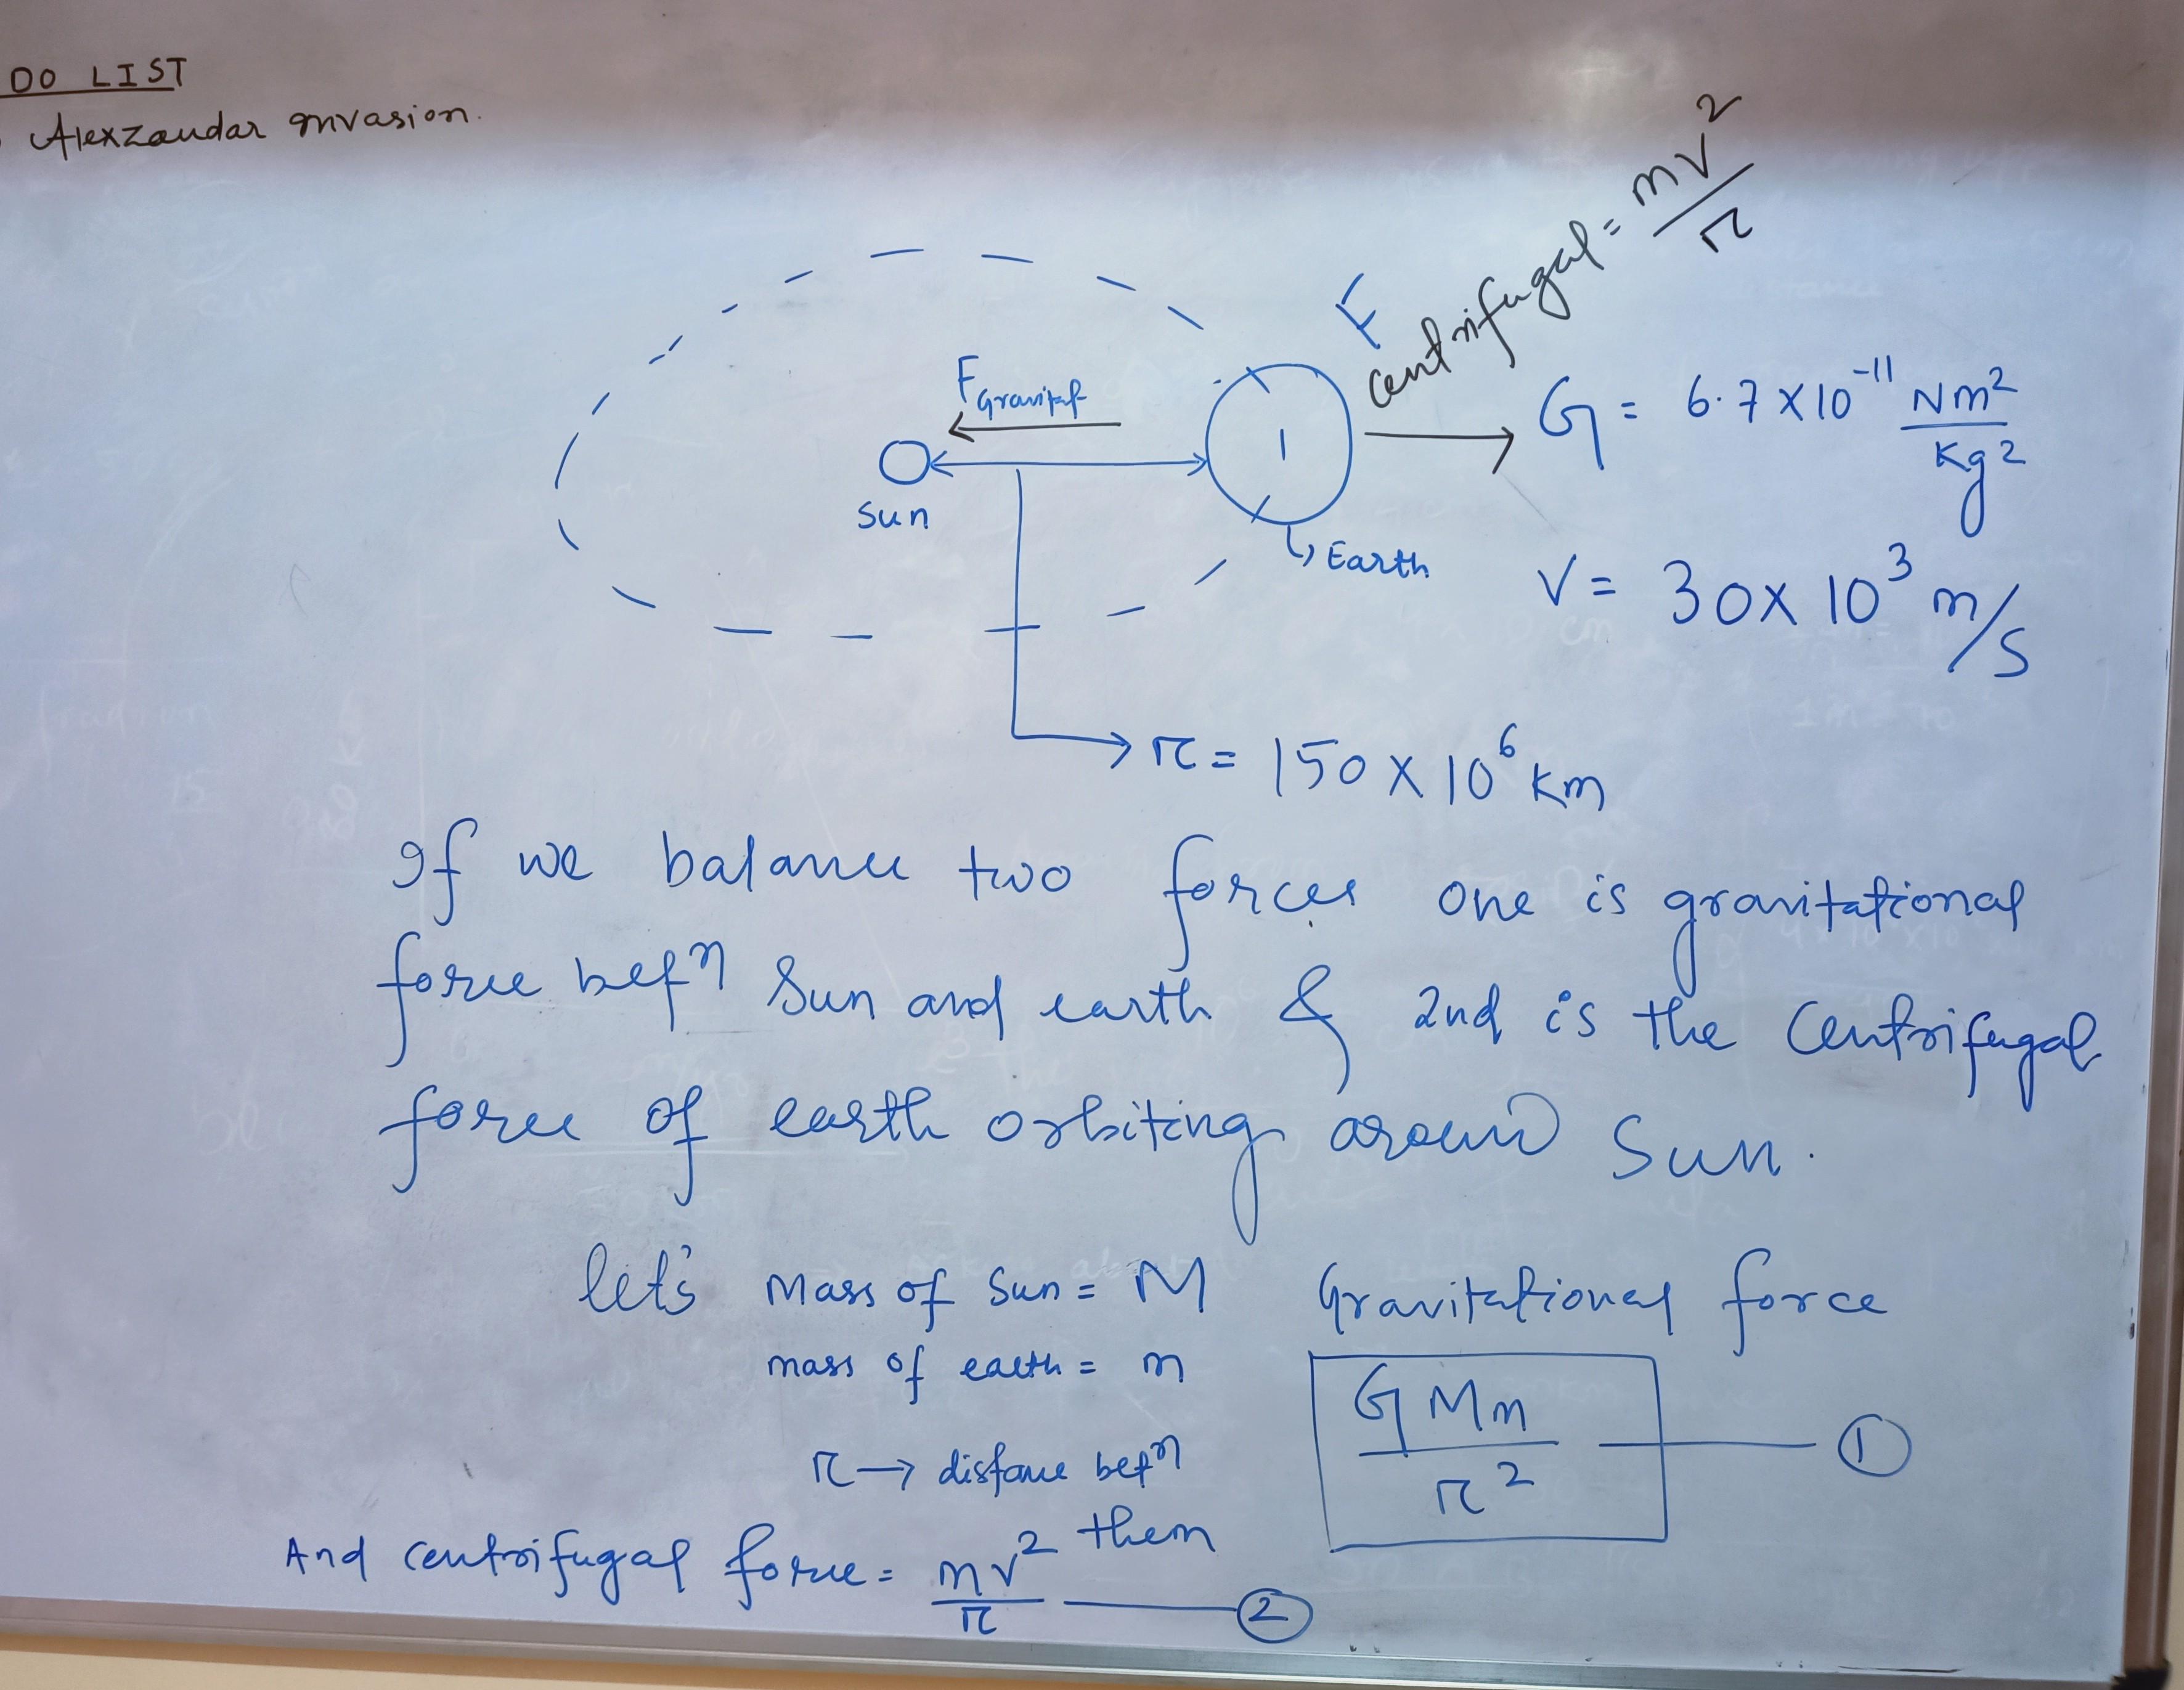 DO LIST
Alexzandar invasion.
F centrifugal = mv²/r
F Gravitat
G = 6.7 × 10⁻¹¹ Nm²/Kg²
Sun
Earth
V = 30 × 10³ m/s
r = 150 × 10⁶ km
If we balance two forces one is gravitational
force betⁿ Sun and earth & 2nd is the Centrifugal
force of earth orbiting around Sun.
let's Mass of Sun = M
mass of earth = m
r → distance betⁿ
them
Gravitational force
GMm/r² — ①
And centrifugal force = mv²/r — ②